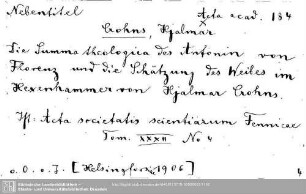 Nebentitel Acta acad. 134
Crohns Hjalmar
Die Summa theologica des Antonin von
Florenz und die Schätzung des Weibes im
Hexenhammer von Hjalmar Crohns.
Jst: Acta societatis scientiarum Fennicae
Tom. XXXII No 4
o. O. o. J. [Helsingfors 1906]